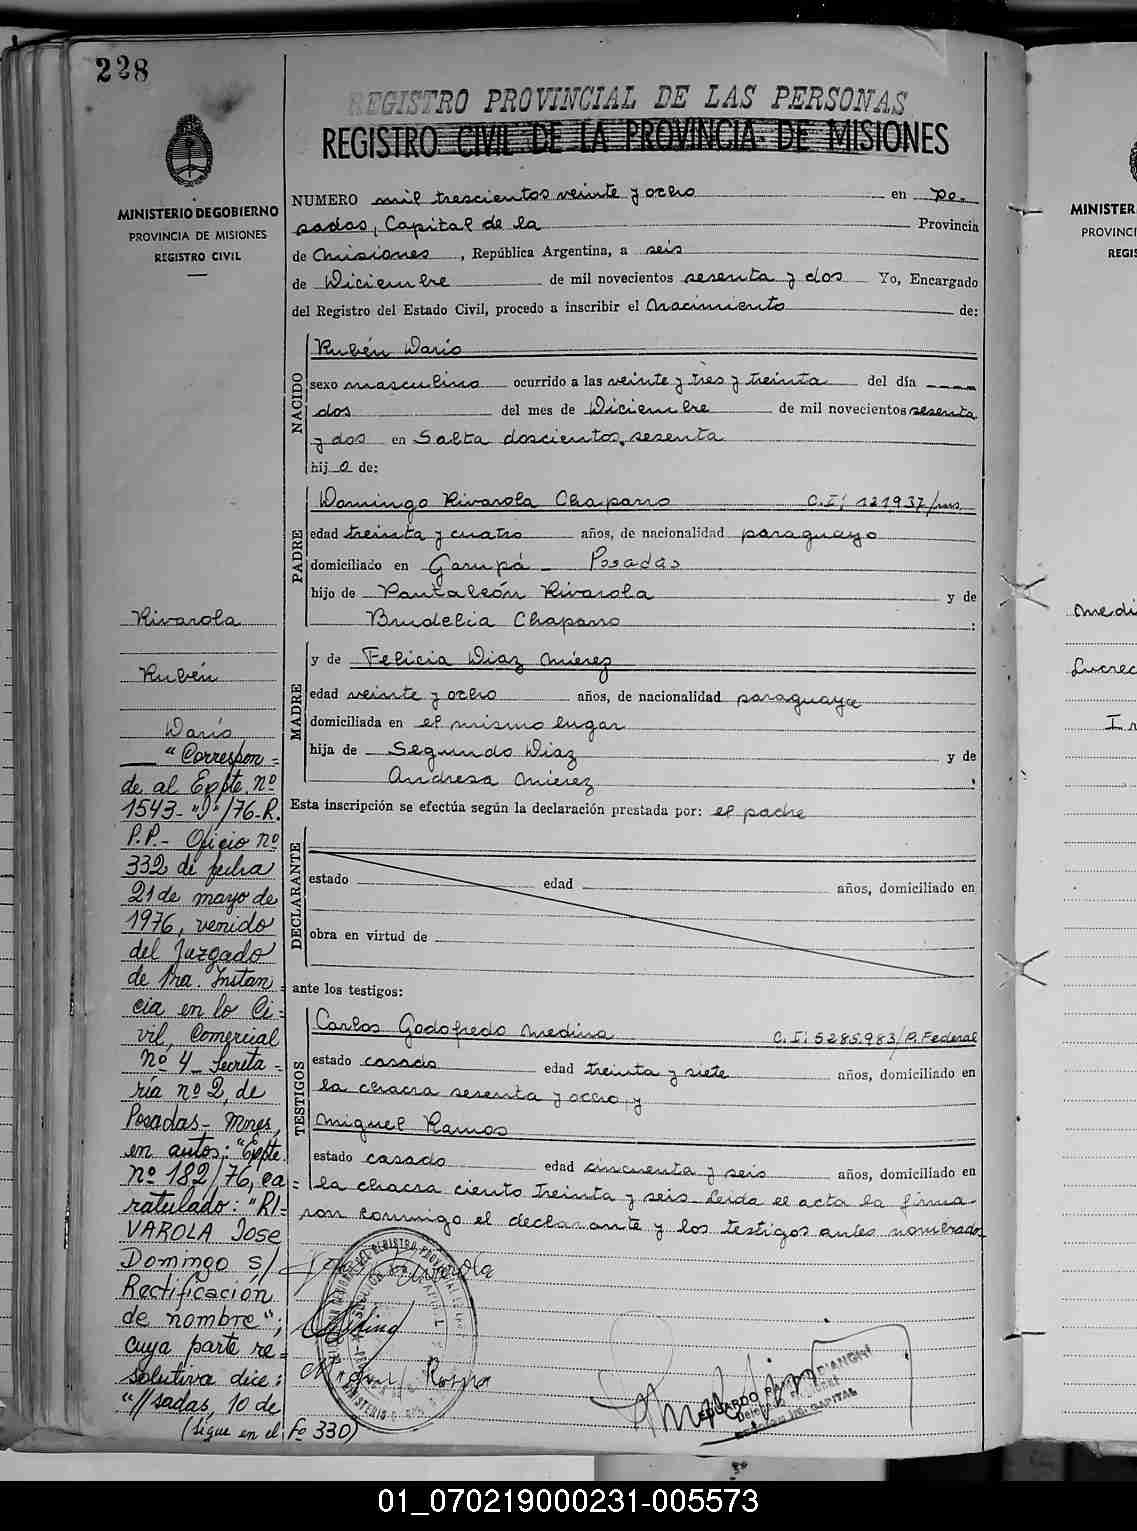 228
REGISTRO PROVINCIAL DE LAS PERSONAS
REGISTRO CIVIL DE LA PROVINCIA DE MISIONES
MINISTERIO DE GOBIERNO
PROVINCIA DE MISIONES
REGISTRO CIVIL
NUMERO mil trescientos veinte y ocho en Po-
sadas, Capital de la Provincia
de Misiones, República Argentina, a seis
de Diciembre de mil novecientos sesenta y dos Yo, Encargado
del Registro del Estado Civil, procedo a inscribir el Nacimiento de:
NACIDO
Rubén Darío
sexo masculino ocurrido a las veinte y tres y treinta del día ----
dos del mes de Diciembre de mil novecientos sesenta
y dos en Salta doscientos sesenta
hij o de:
PADRE
Domingo Rivarola Chaparro C.I: 121937/mis.
edad treinta y cuatro años, de nacionalidad paraguayo
domiciliado en Garupá - Posadas
hijo de Pantaleón Rivarola y de
Brudelia Chaparro :
MADRE
y de Felicia Diaz Mierez
edad veinte y ocho años, de nacionalidad paraguaya
domiciliada en el mismo lugar
hija de Segundo Diaz y de
Andresa Mierez :
Esta inscripción se efectúa según la declaración prestada por: el padre
DECLARANTE
estado edad años, domiciliado en
obra en virtud de
ante los testigos:
TESTIGOS
Carlos Godofredo Medina C.I: 5285.983/P. Federal
estado casado edad treinta y siete años, domiciliado en
la chacra sesenta y ocho, y
Miguel Ramos
estado casado edad cincuenta y seis años, domiciliado en
la chacra ciento treinta y seis. Leida el acta la firma-
ron conmigo el declarante y los testigos antes nombrados-
Rivarola
Rubén
Darío
"Correspon-
de al Expte. nº
1543-"J"/76-R.
P.P.- Oficio nº
332 de fecha
21 de mayo de
1976, venido
del Juzgado
de 1ra. Instan-
cia en lo Ci-
vil, Comercial
nº 4 - Secreta-
ría nº 2, de
Posadas- Mnes,
en autos: "Expte.
nº 182/76, ca-
ratulado: "RI-
VAROLA Jose
Domingo s/
Rectificación
de nombre";
cuya parte re-
solutiva dice:
"//sadas, 10 de
(sigue en el fo 330)
Rivarola
Medina
Miguel Ramos
EDUARDO
CAPITAL
MINISTER
PROVINCI
REGIS
Medi
Lucrec
01_070219000231-005573